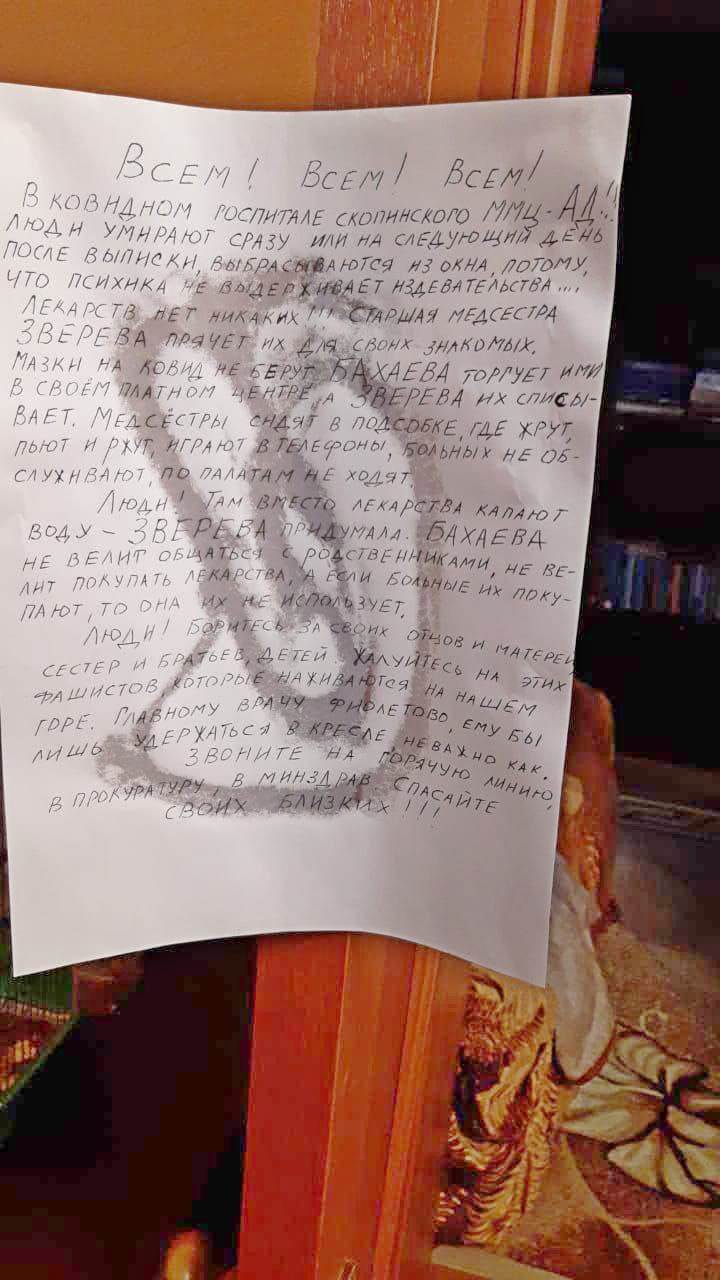 ВСЕМ! ВСЕМ! ВСЕМ!
В КОВИДНОМ ГОСПИТАЛЕ СКОПИНСКОГО ММЦ - АД!!
ЛЮДИ УМИРАЮТ СРАЗУ ИЛИ НА СЛЕДУЮЩИЙ ДЕНЬ
ПОСЛЕ ВЫПИСКИ, ВЫБРАСЫВАЮТСЯ ИЗ ОКНА, ПОТОМУ,
ЧТО ПСИХИКА НЕ ВЫДЕРЖИВАЕТ ИЗДЕВАТЕЛЬСТВА....
ЛЕКАРСТВ НЕТ НИКАКИХ!!! СТАРШАЯ МЕДСЕСТРА
ЗВЕРЕВА ПРЯЧЕТ ИХ ДЛЯ СВОИХ ЗНАКОМЫХ.
МАЗКИ НА КОВИД НЕ БЕРУТ. БАХАЕВА ТОРГУЕТ ИМИ
В СВОЁМ ПЛАТНОМ ЦЕНТРЕ, А ЗВЕРЕВА ИХ СПИСЫ-
ВАЕТ. МЕДСЁСТРЫ СИДЯТ В ПОДСОБКЕ, ГДЕ ЖРУТ,
ПЬЮТ И РЖУТ, ИГРАЮТ В ТЕЛЕФОНЫ, БОЛЬНЫХ НЕ ОБ-
СЛУЖИВАЮТ, ПО ПАЛАТАМ НЕ ХОДЯТ.
ЛЮДИ! ТАМ ВМЕСТО ЛЕКАРСТВА КАПАЮТ
ВОДУ - ЗВЕРЕВА ПРИДУМАЛА. БАХАЕВА
НЕ ВЕЛИТ ОБЩАТЬСЯ С РОДСТВЕННИКАМИ, НЕ ВЕ-
ЛИТ ПОКУПАТЬ ЛЕКАРСТВА, А ЕСЛИ БОЛЬНЫЕ ИХ ПОКУ-
ПАЮТ, ТО ОНА ИХ НЕ ИСПОЛЬЗУЕТ.
ЛЮДИ! БОРИТЕСЬ ЗА СВОИХ ОТЦОВ И МАТЕРЕЙ
СЕСТЕР И БРАТЬЕВ, ДЕТЕЙ. ЖАЛУЙТЕСЬ НА ЭТИХ
ФАШИСТОВ КОТОРЫЕ НАЖИВАЮТСЯ НА НАШЕМ
ГОРЕ. ГЛАВНОМУ ВРАЧУ ФИОЛЕТОВО, ЕМУ БЫ
ЛИШЬ УДЕРЖАТЬСЯ В КРЕСЛЕ, НЕВАЖНО КАК.
ЗВОНИТЕ НА ГОРЯЧУЮ ЛИНИЮ,
В ПРОКУРАТУРУ, В МИНЗДРАВ СПАСАЙТЕ
СВОИХ БЛИЗКИХ!!!